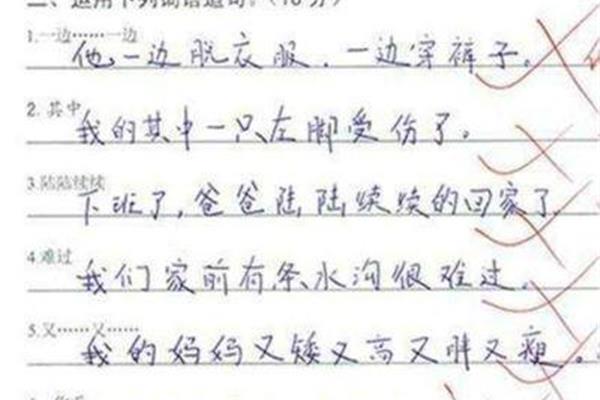 二、运用下列词语造句。(10分)
1.一边……一边
他一边脱衣服，一边穿裤子。
2. 其中
我的其中一只左脚受伤了。
3.陆陆续续
下班了，爸爸陆陆续续的回家了
4.难过
我们家前有条水沟很难过。
5.又……又……
我的妈妈又矮又高又胖又瘦。